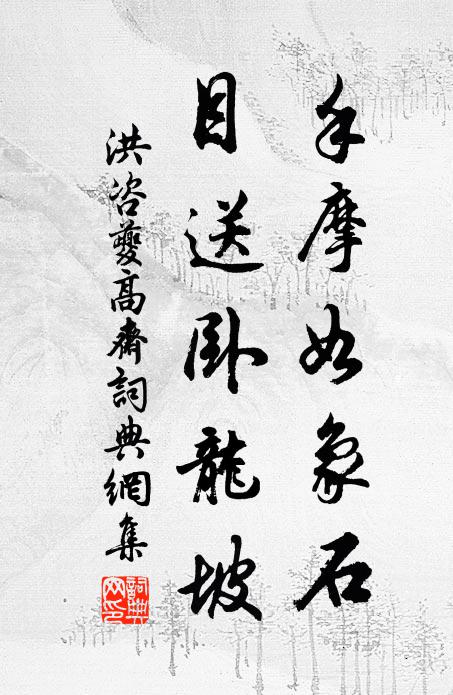 手摩如象石
目送卧龍坡
洪咨夔高齋詞典網集
詞典網印